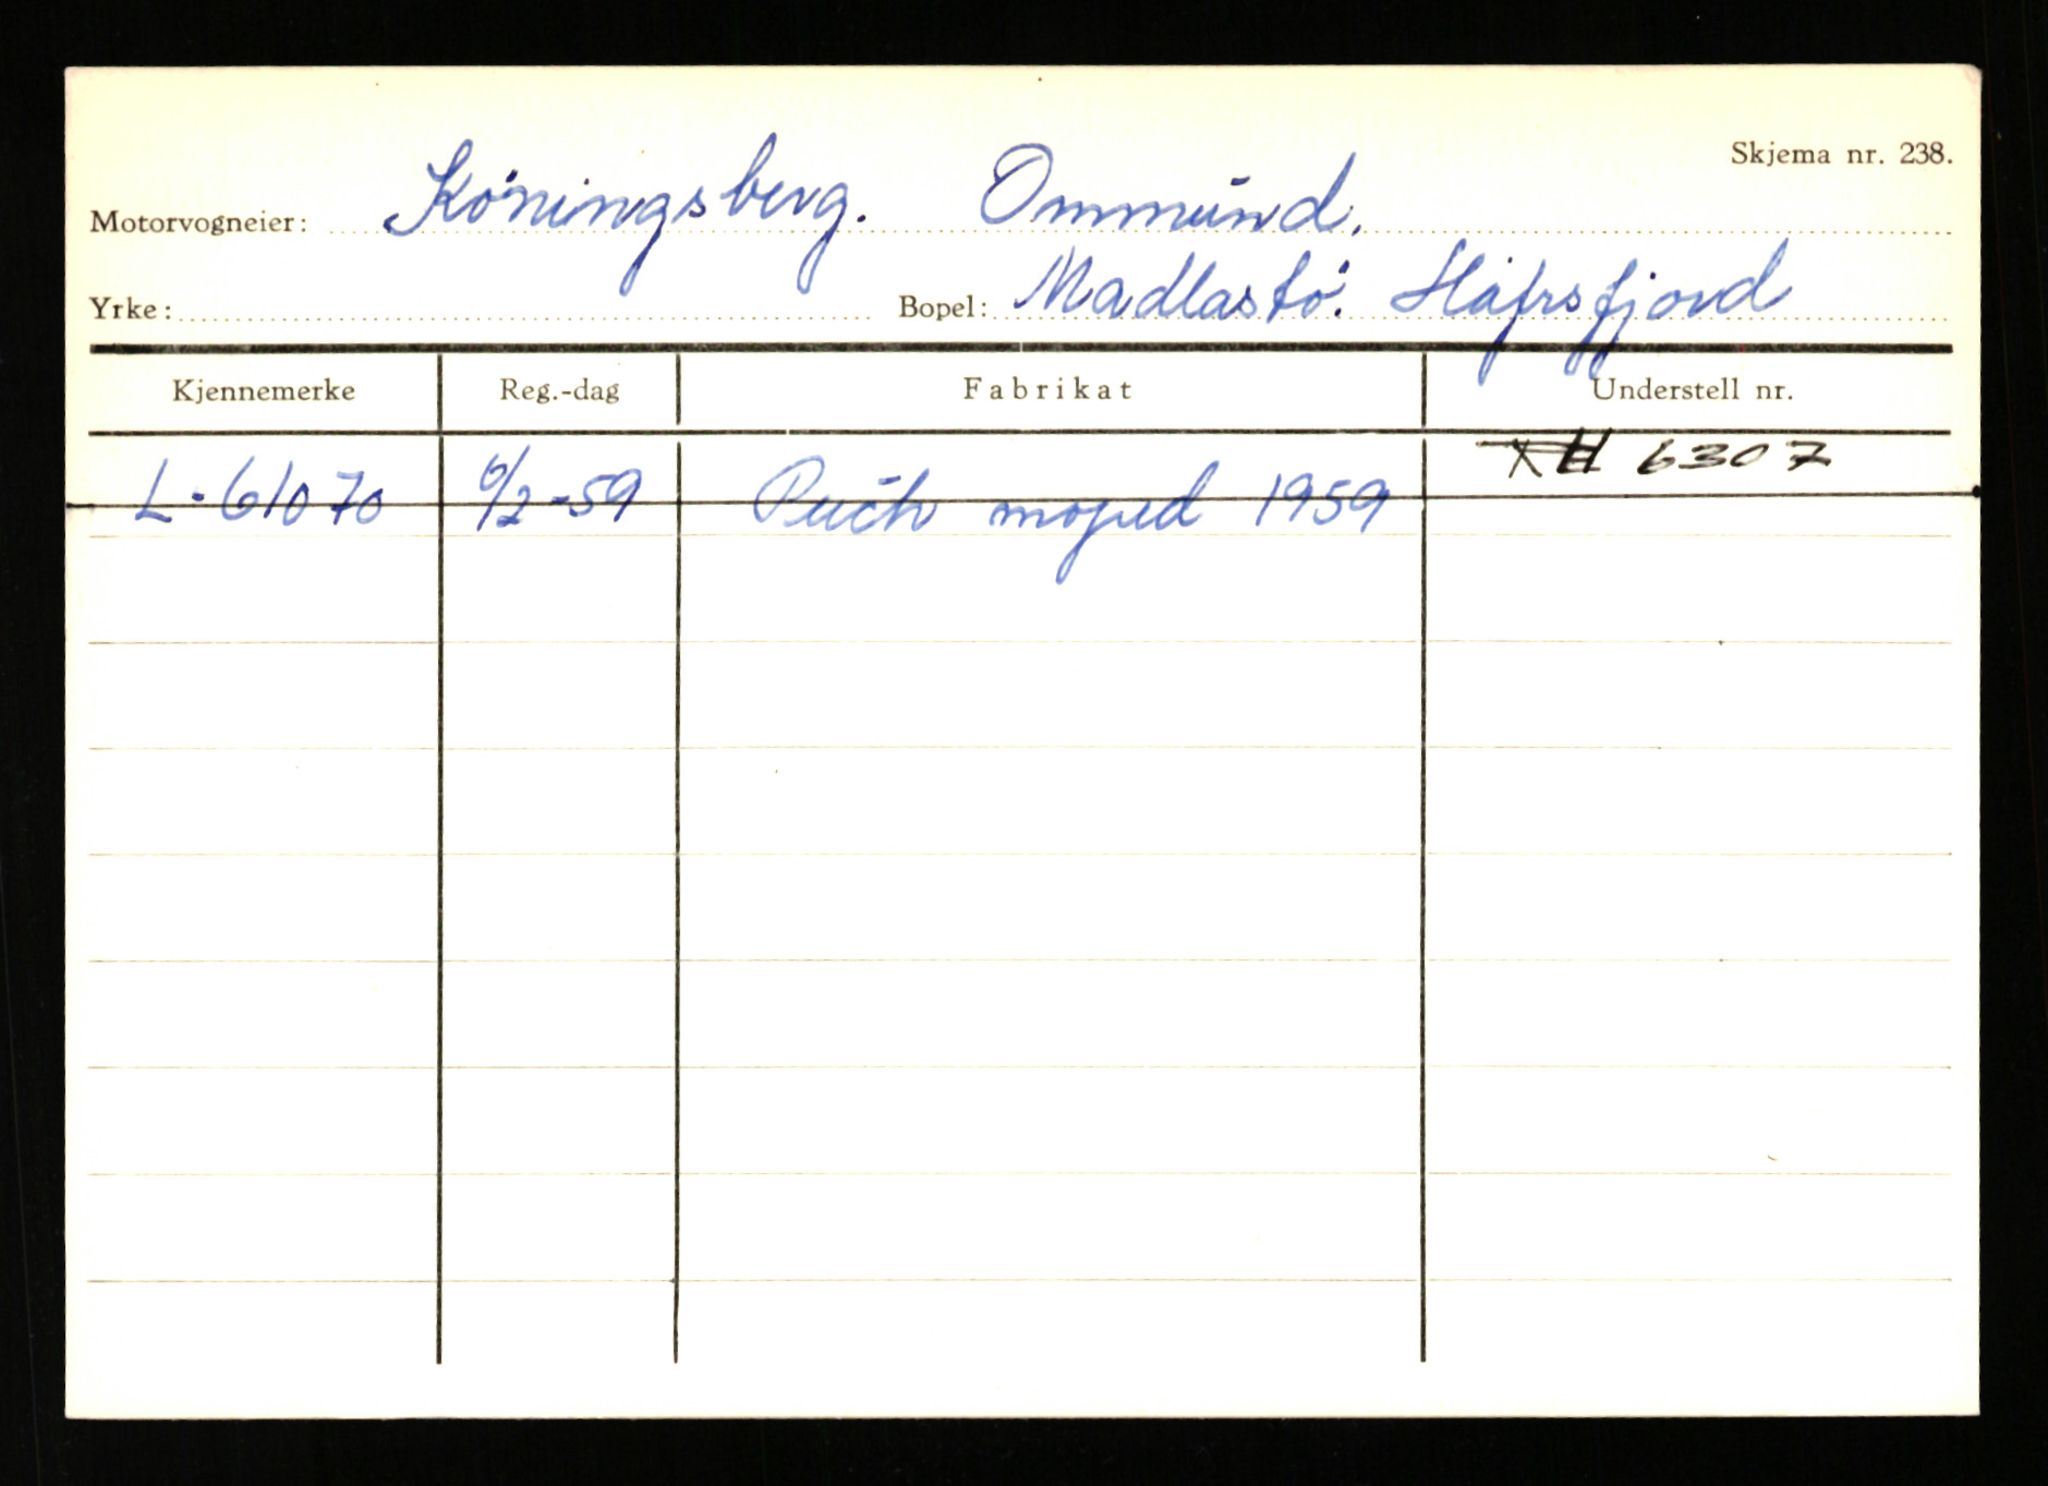 Skjema nr. 238.
Motorvogneier: Köningsberg. Ommund.
Yrke: Bopel: Madlastö. Hafrsfjord
Kjennemerke Reg.-dag Fabrikat Understell nr.
6307
L-61070 6/2-59 Puch moped 1959